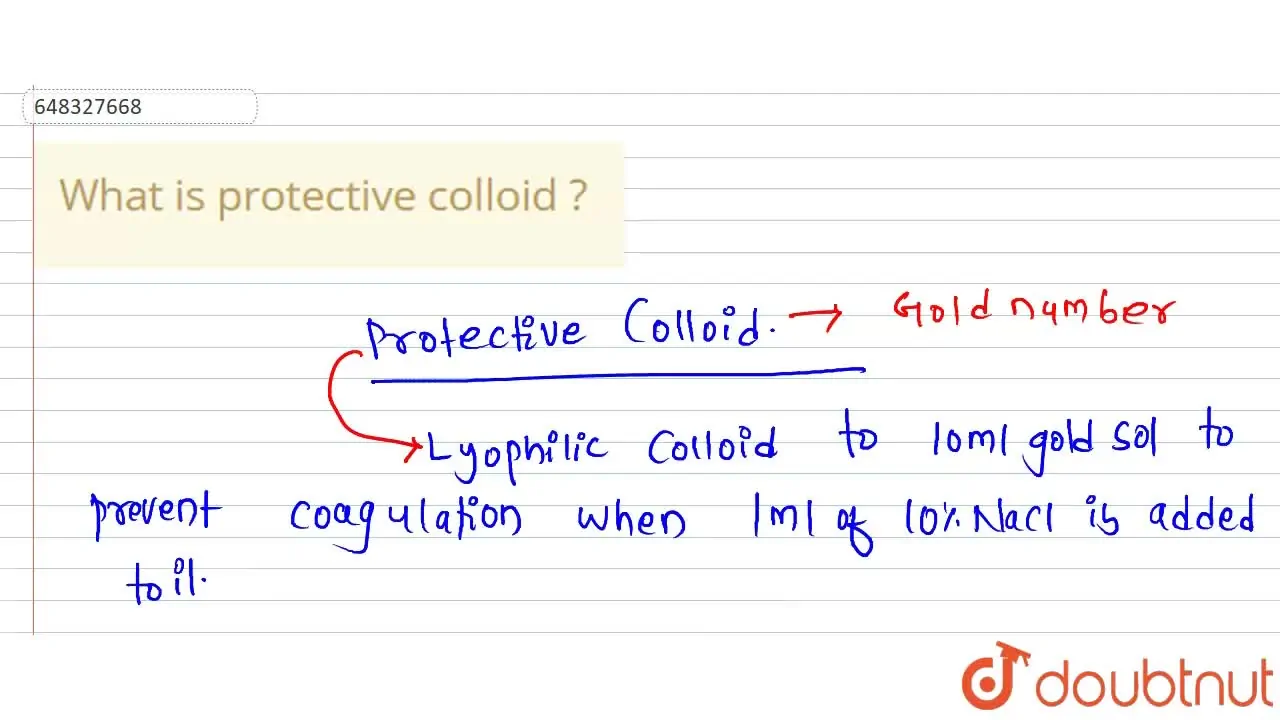 648327668
What is protective colloid ?
Protective Colloid. → Gold number
Lyophilic Colloid to 10ml gold sol to
prevent coagulation when 1ml of 10% NaCl is added
to it.
doubtnut